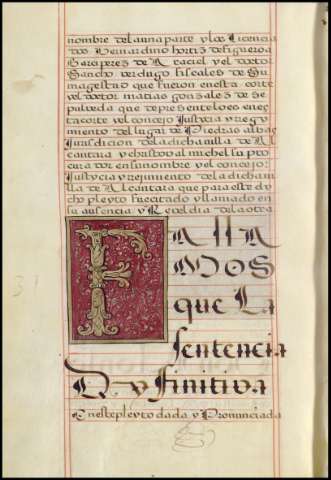 nombre dela una parte y los licencia
dos Bernardino hortiz de figueroa
Garciperez de Araciel y el dotor
Sancho verdugo fiscales de Su
magestad que fueron en esta corte
y el dotor matias gonzales de se
pulueda que de presente lo es en es
ta corte y el concejo Justicia y regi
miento del lugar de Piedras albas
Jurisdicion de la dicha villa de Al
cantara y christoual michel su pro
curador en su nombre y el concejo
Justicia y regimiento de la dicha vi
lla de Alcantara que para este dy
cho pleyto fue citado y llamado en
su ausencia y Reveldia de la otra
FALLA
MOS
que La
sentencia
Dyfinitiva
En este pleyto dada y Pronunciada